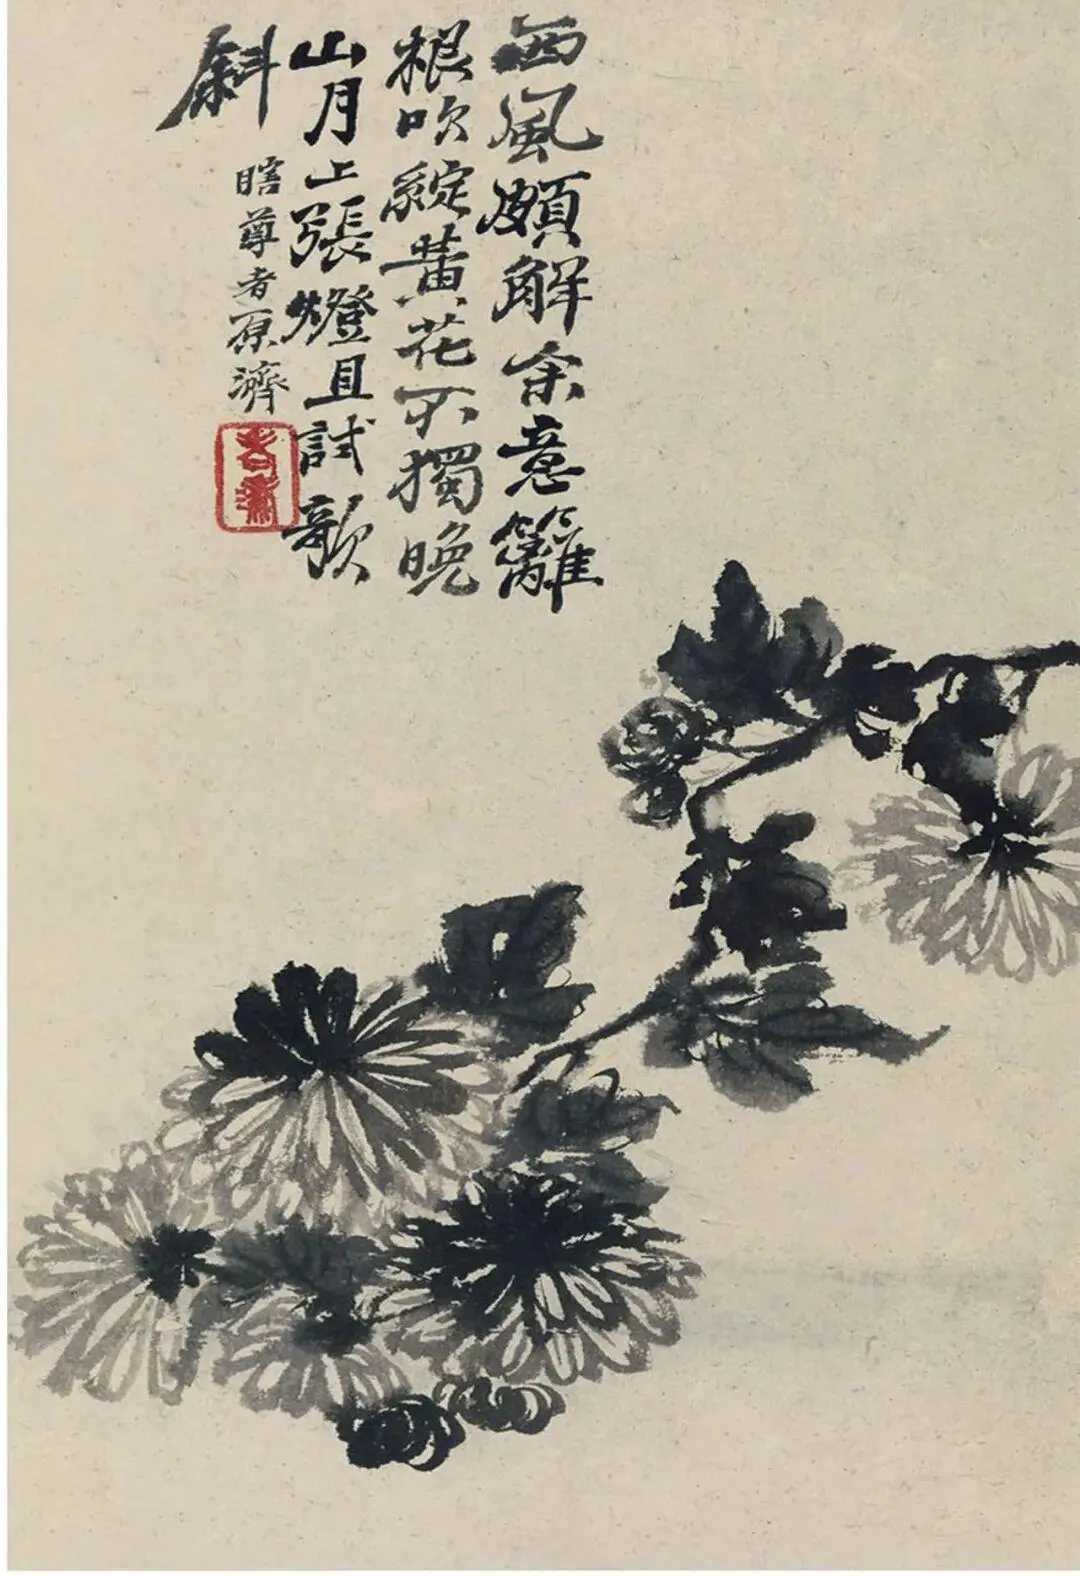 西風頗解余意籬
根吹綻黄花不獨晚
山月上張燈且試歌
斜
瞎尊者原濟